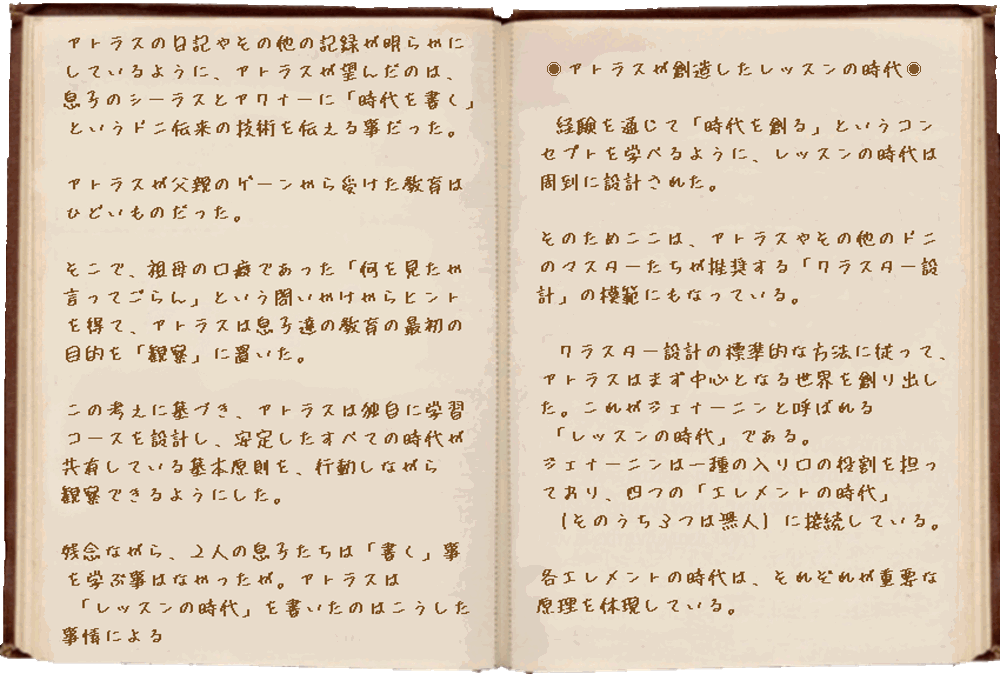 アトラスの日記やその他の記録が明らかに
しているように、アトラスが望んだのは、
息子のシーラスとアクナーに「時代を書く」
というドニ伝来の技術を伝える事だった。
アトラスが父親のゲーンから受けた教育は
ひどいものだった。
そこで、祖母の口癖であった「何を見たか
言ってごらん」という問いかけからヒント
を得て、アトラスは息子達の教育の最初の
目的を「観察」に置いた。
この考えに基づき、アトラスは独自に学習
コースを設計し、安定したすべての時代が
共有している基本原則を、行動しながら
観察できるようにした。
残念ながら、2人の息子たちは「書く」事
を学ぶ事はなかったが。アトラスは
「レッスンの時代」を書いたのはこうした
事情による
◉アトラスが創造したレッスンの時代◉
経験を通じて「時代を創る」というコン
セプトを学べるように、レッスンの時代は
周到に設計された。
そのためここは、アトラスやその他のドニ
のマスターたちが推奨する「クラスター設
計」の模範にもなっている。
クラスター設計の標準的な方法に従って、
アトラスはまず中心となる世界を創り出し
た。これがジェナーニンと呼ばれる
「レッスンの時代」である。
ジェナーニンは一種の入り口の役割を担っ
ており、四つの「エレメントの時代」
(そのうち3つは無人)に接続している。
各エレメントの時代は、それぞれが重要な
原理を体現している。